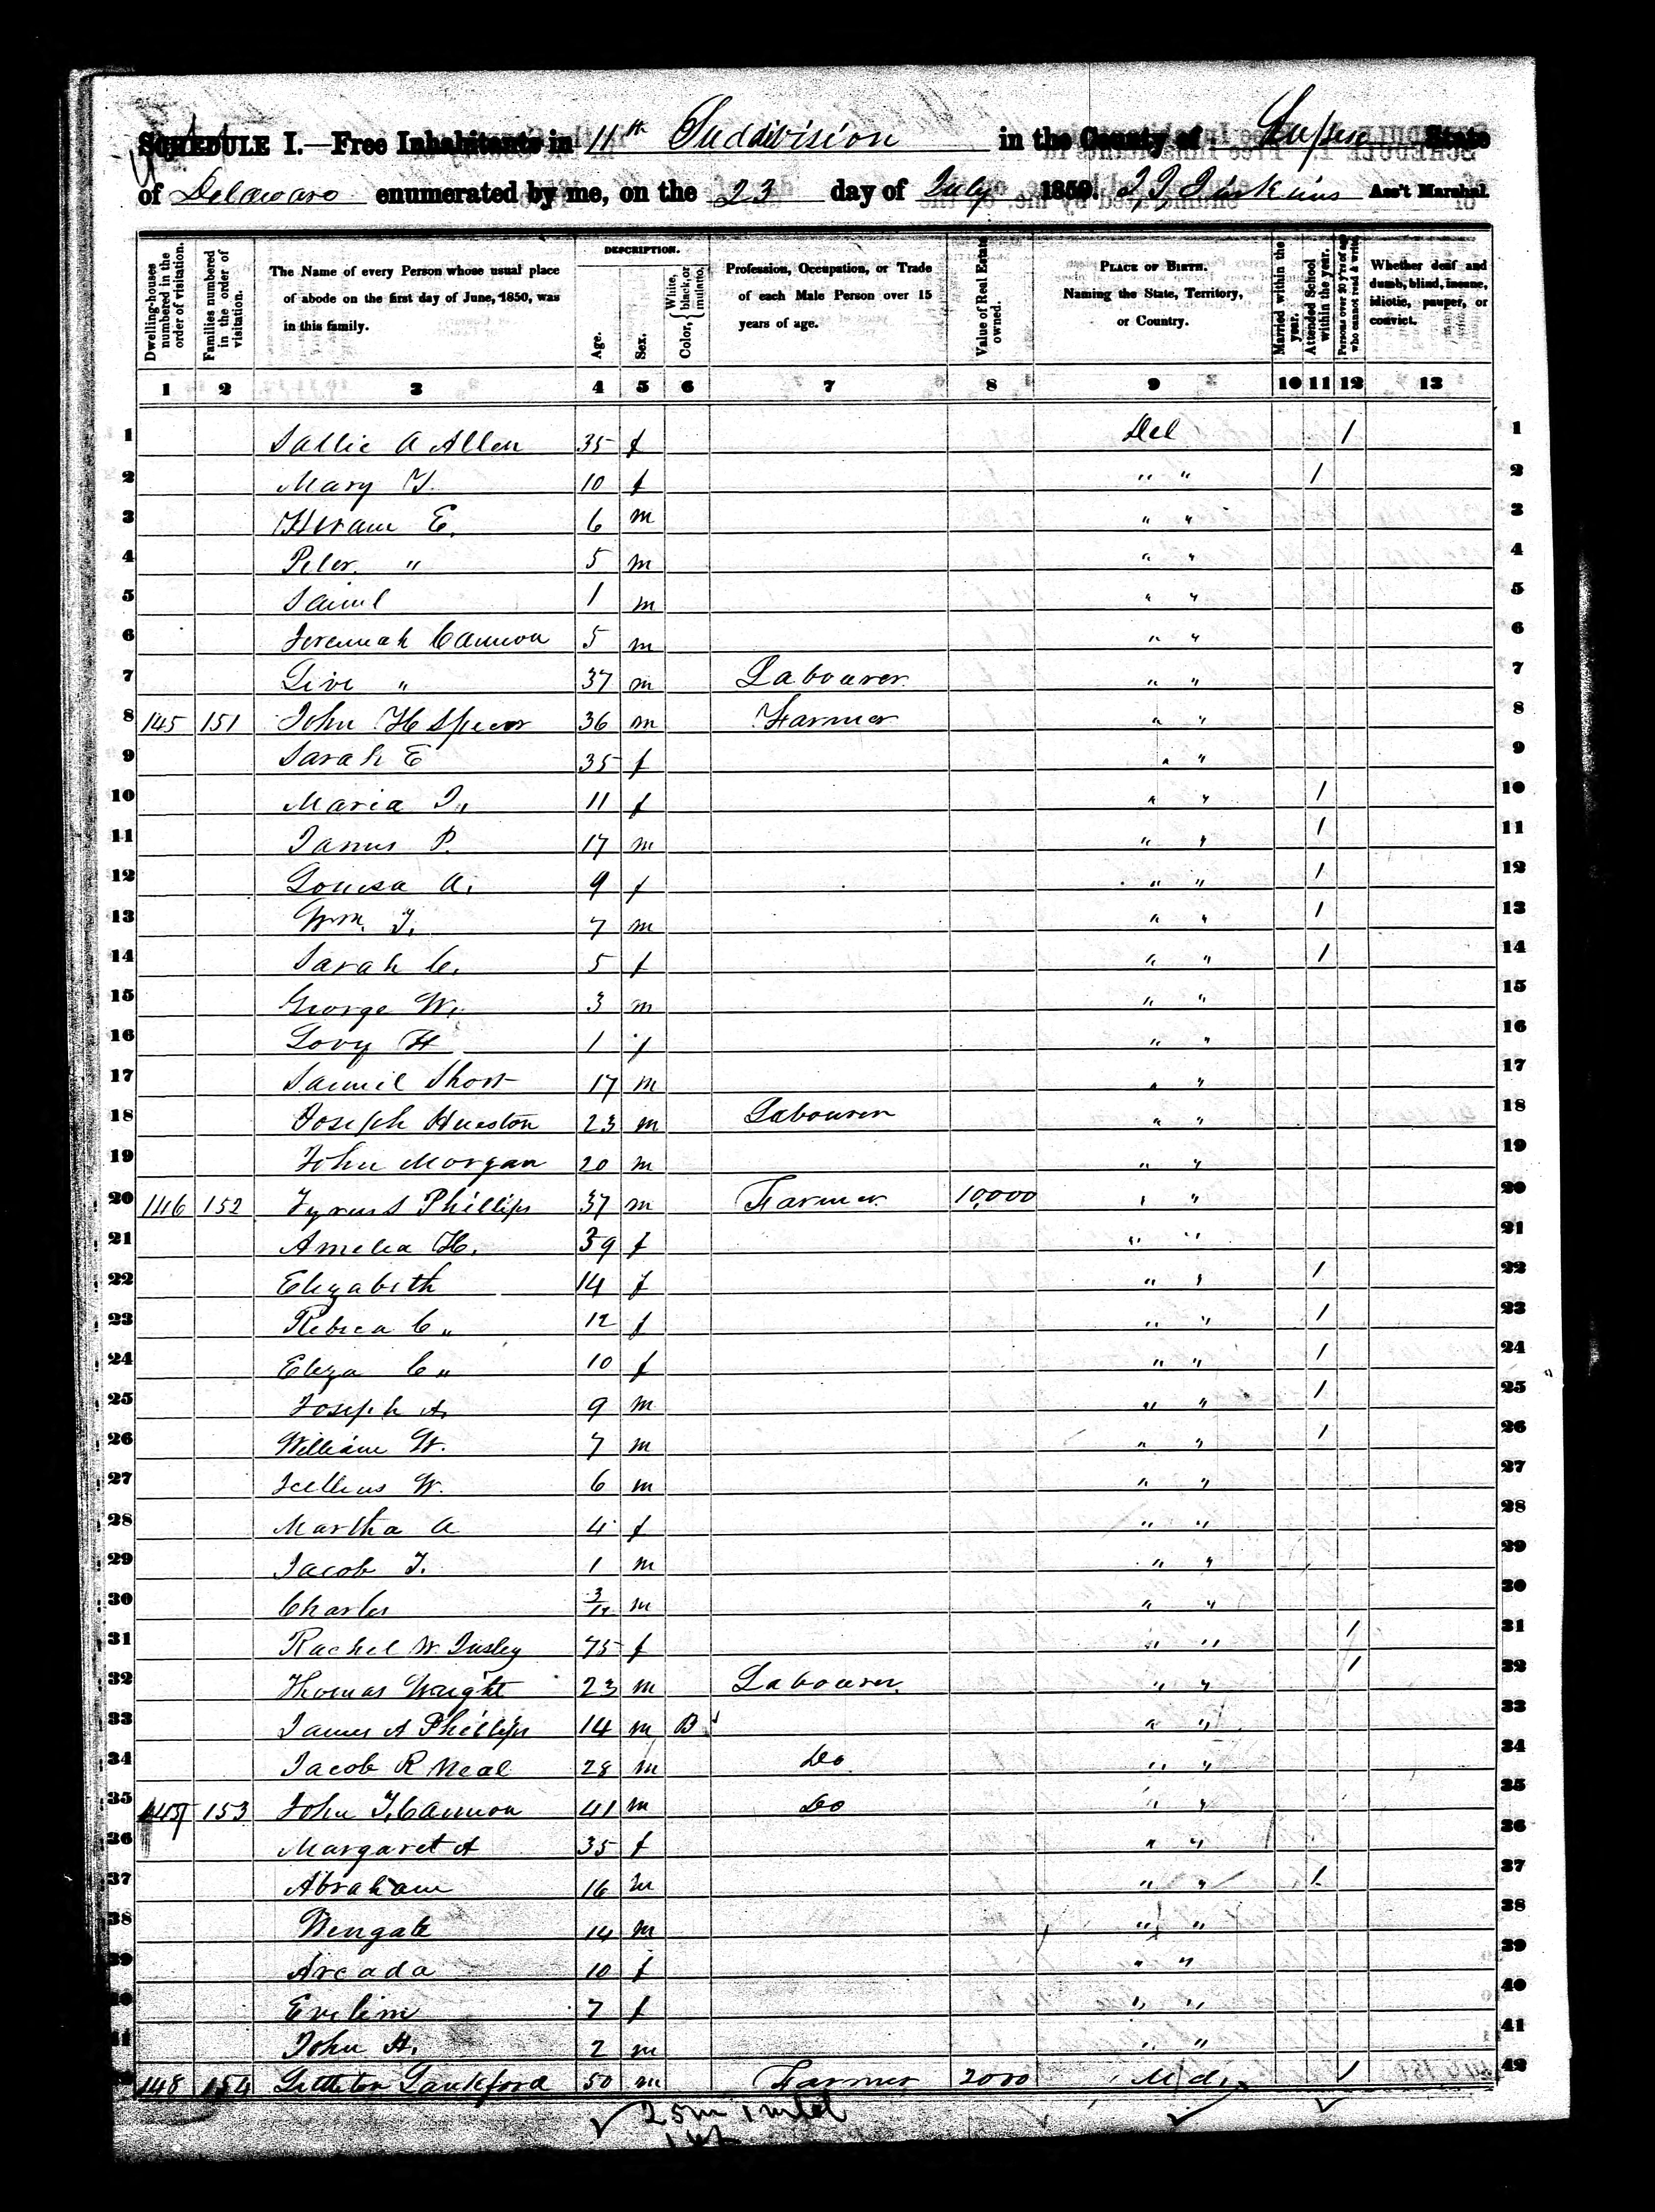 SCHEDULE I.—Free Inhabitants in 11th Subdivision in the County of Sussex State
of Delaware enumerated by me, on the 23 day of July 1850. Ass't Marshal.
Dwelling-houses numbered in the order of visitation.
Families numbered in the order of visitation.
The Name of every Person whose usual place of abode on the first day of June, 1850, was in this family.
DESCRIPTION.
Age.
Sex.
Color, { White, black, or mulatto.
Profession, Occupation, or Trade of each Male Person over 15 years of age.
Value of Real Estate owned.
PLACE OF BIRTH. Naming the State, Territory, or Country.
Married within the year.
Attended School within the year.
Persons over 20 y'rs of age who cannot read & write.
Whether deaf and dumb, blind, insane, idiotic, pauper, or convict.
1 2 3 4 5 6 7 8 9 10 11 12 13
1 Sallie A Allen 35 f Del 1 1
2 Mary T. 10 f " " 1 2
3 Hiram E. 6 m " " 3
4 Peter " 5 m " " 4
5 Saml 1 m " " 5
6 Jeremiah Cannon 5 m " " 6
7 " 37 m Labourer " " 7
8 145 151 John H Spicer 36 m Farmer " " 8
9 Sarah E 35 f " " 9
10 Maria 11 f " " 1 10
11 James P. 17 m " " 1 11
12 Louisa A. 9 f " " 1 12
13 Wm. T. 7 m " " 1 13
14 Sarah C. 5 f " " 1 14
15 George W. 3 m " " 15
16 Lovy H 1 f " " 16
17 Samuel Short 17 m " " 17
18 Joseph Hueston 23 m Labourer " " 18
19 John Morgan 20 m " " 19
20 146 152 Tyrus S Phillips 37 m Farmer 10,000 " " 20
21 Amelia H. 39 f " " 21
22 Elizabeth 14 f " " 1 22
23 Rebeca C " 12 f " " 1 23
24 Eliza C " 10 f " " 1 24
25 Joseph A. 9 m " " 1 25
26 William W. 7 m " " 1 26
27 W. 6 m " " 27
28 Martha A 4 f " " 28
29 Jacob T. 1 m " " 29
30 Charles 3/12 m " " 30
31 Rachel W. Insley 75 f " " 1 31
32 Thomas Wright 23 m Labourer. " " 1 32
33 James A Phillips 14 m B. " " 33
34 Jacob R Neal 28 m Do " " 34
35 153 John T. Cannon 41 m Do " " 35
36 Margaret A 35 f " " 36
37 Abraham 16 m " " 1 37
38 Wingate 14 m " " 38
39 Arcada 10 f " " 39
40 Evelina 7 f " " 40
41 John H. 2 m " " 41
148 154 Littleton Lankford 50 m Farmer 2000 Md. 1 42
25m 1 mld